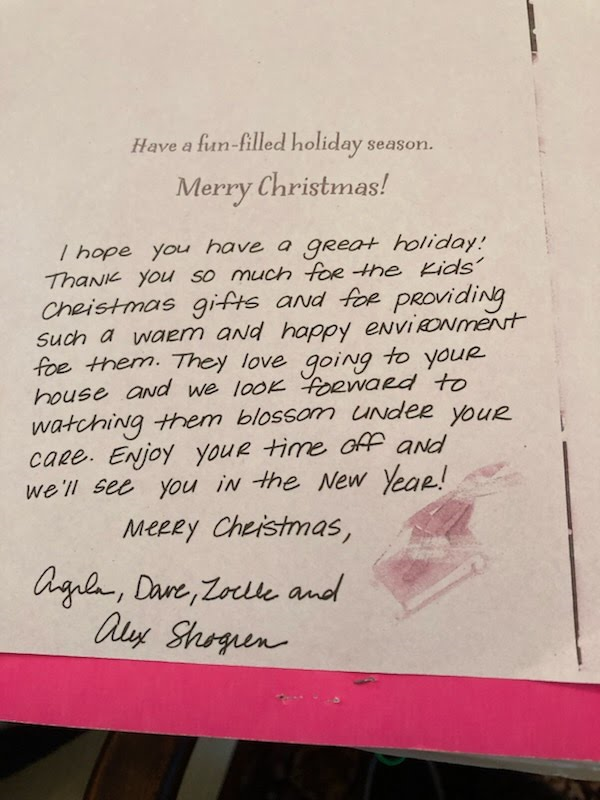 Have a fun-filled holiday season.
Merry Christmas!
I hope you have a great holiday!
Thank you so much for the kids'
Christmas gifts and for providing
such a warm and happy environment
for them. They love going to your
house and we look forward to
watching them blossom under your
care. Enjoy your time off and
we'll see you in the New Year!
Merry Christmas,
Angela, Dave, Zoelle and
Alex Skogren